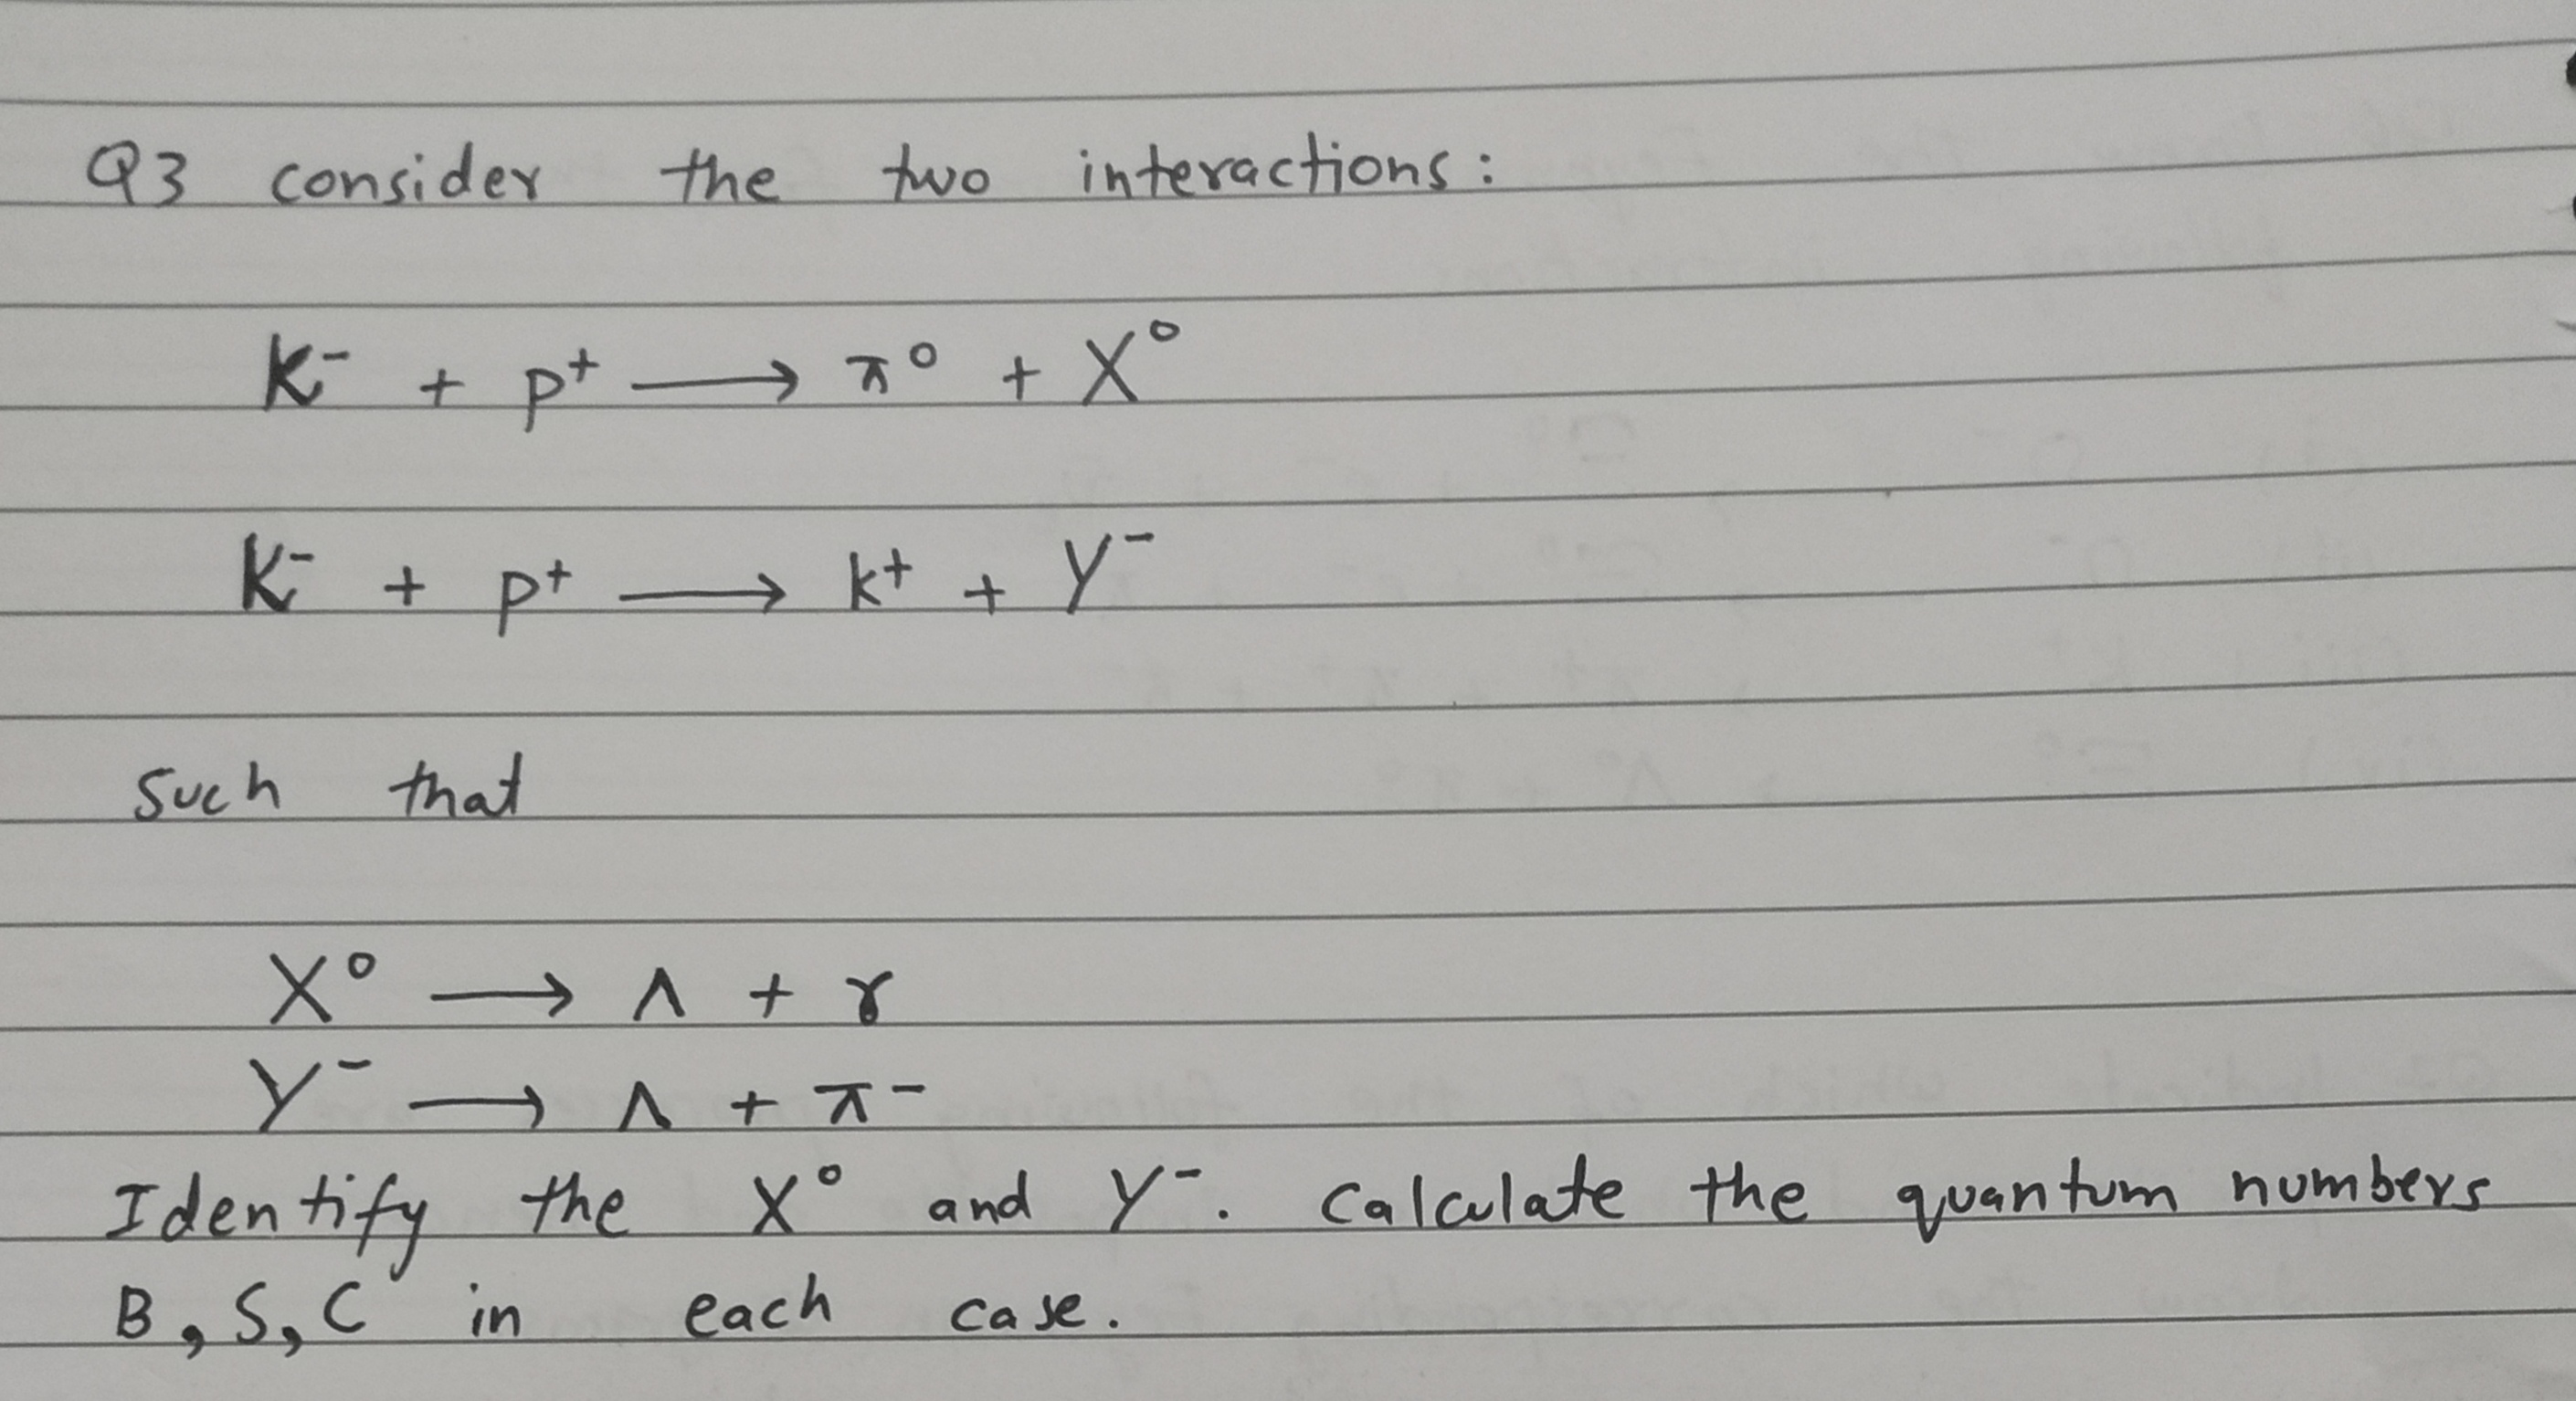 Q3 consider the two interactions:
K⁻ + p⁺ ⟶ π⁰ + X⁰
K⁻ + p⁺ ⟶ k⁺ + Y⁻
Such that
X⁰ ⟶ Λ + γ
Y⁻ ⟶ Λ + π⁻
Identify the X⁰ and Y⁻. Calculate the quantum numbers
B, S, C in each case.